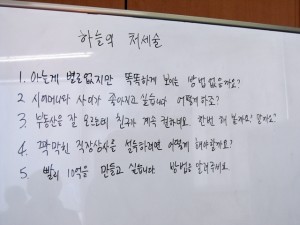 하늘의 처세술
1. 아는게 별로없지만 똑똑하게 보이는 방법 없을까요?
2 시어머니와 사이가 좋아지고 싶습니다 어떻게하죠?
3. 부동산을 잘 모르는데 친구가 계속 권하네요 한번 해 볼까요? 말까요?
4. 꽉막힌 직장상사를 설득하려면 어떻게 해야할까요?
5 빨리 10억을 만들고 싶습니다 방법을 알려주세요